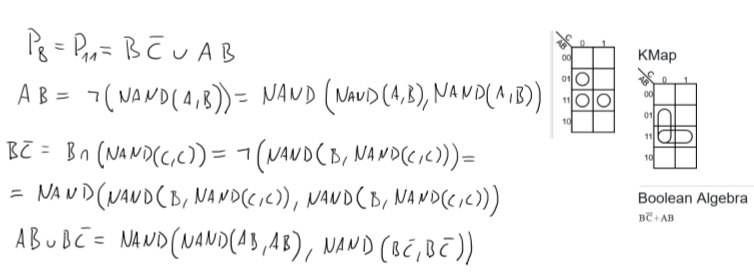 P₈ = P₁₁ = B C̅ ∪ A B
A B = ¬(NAND(A,B)) = NAND (NAND(A,B), NAND(A,B))
BC̅ = B∩(NAND(C,C)) = ¬(NAND(B, NAND(C,C)) =
= NAND(NAND(B, NAND(C,C)), NAND(B, NAND(C,C))
AB∪BC̅ = NAND(NAND(AB,AB), NAND(BC̅,BC̅))
AB C 0 1
00
01 O
11 O O
10
KMap
AB C 0 1
00
01
11
10
Boolean Algebra
BC̅+AB